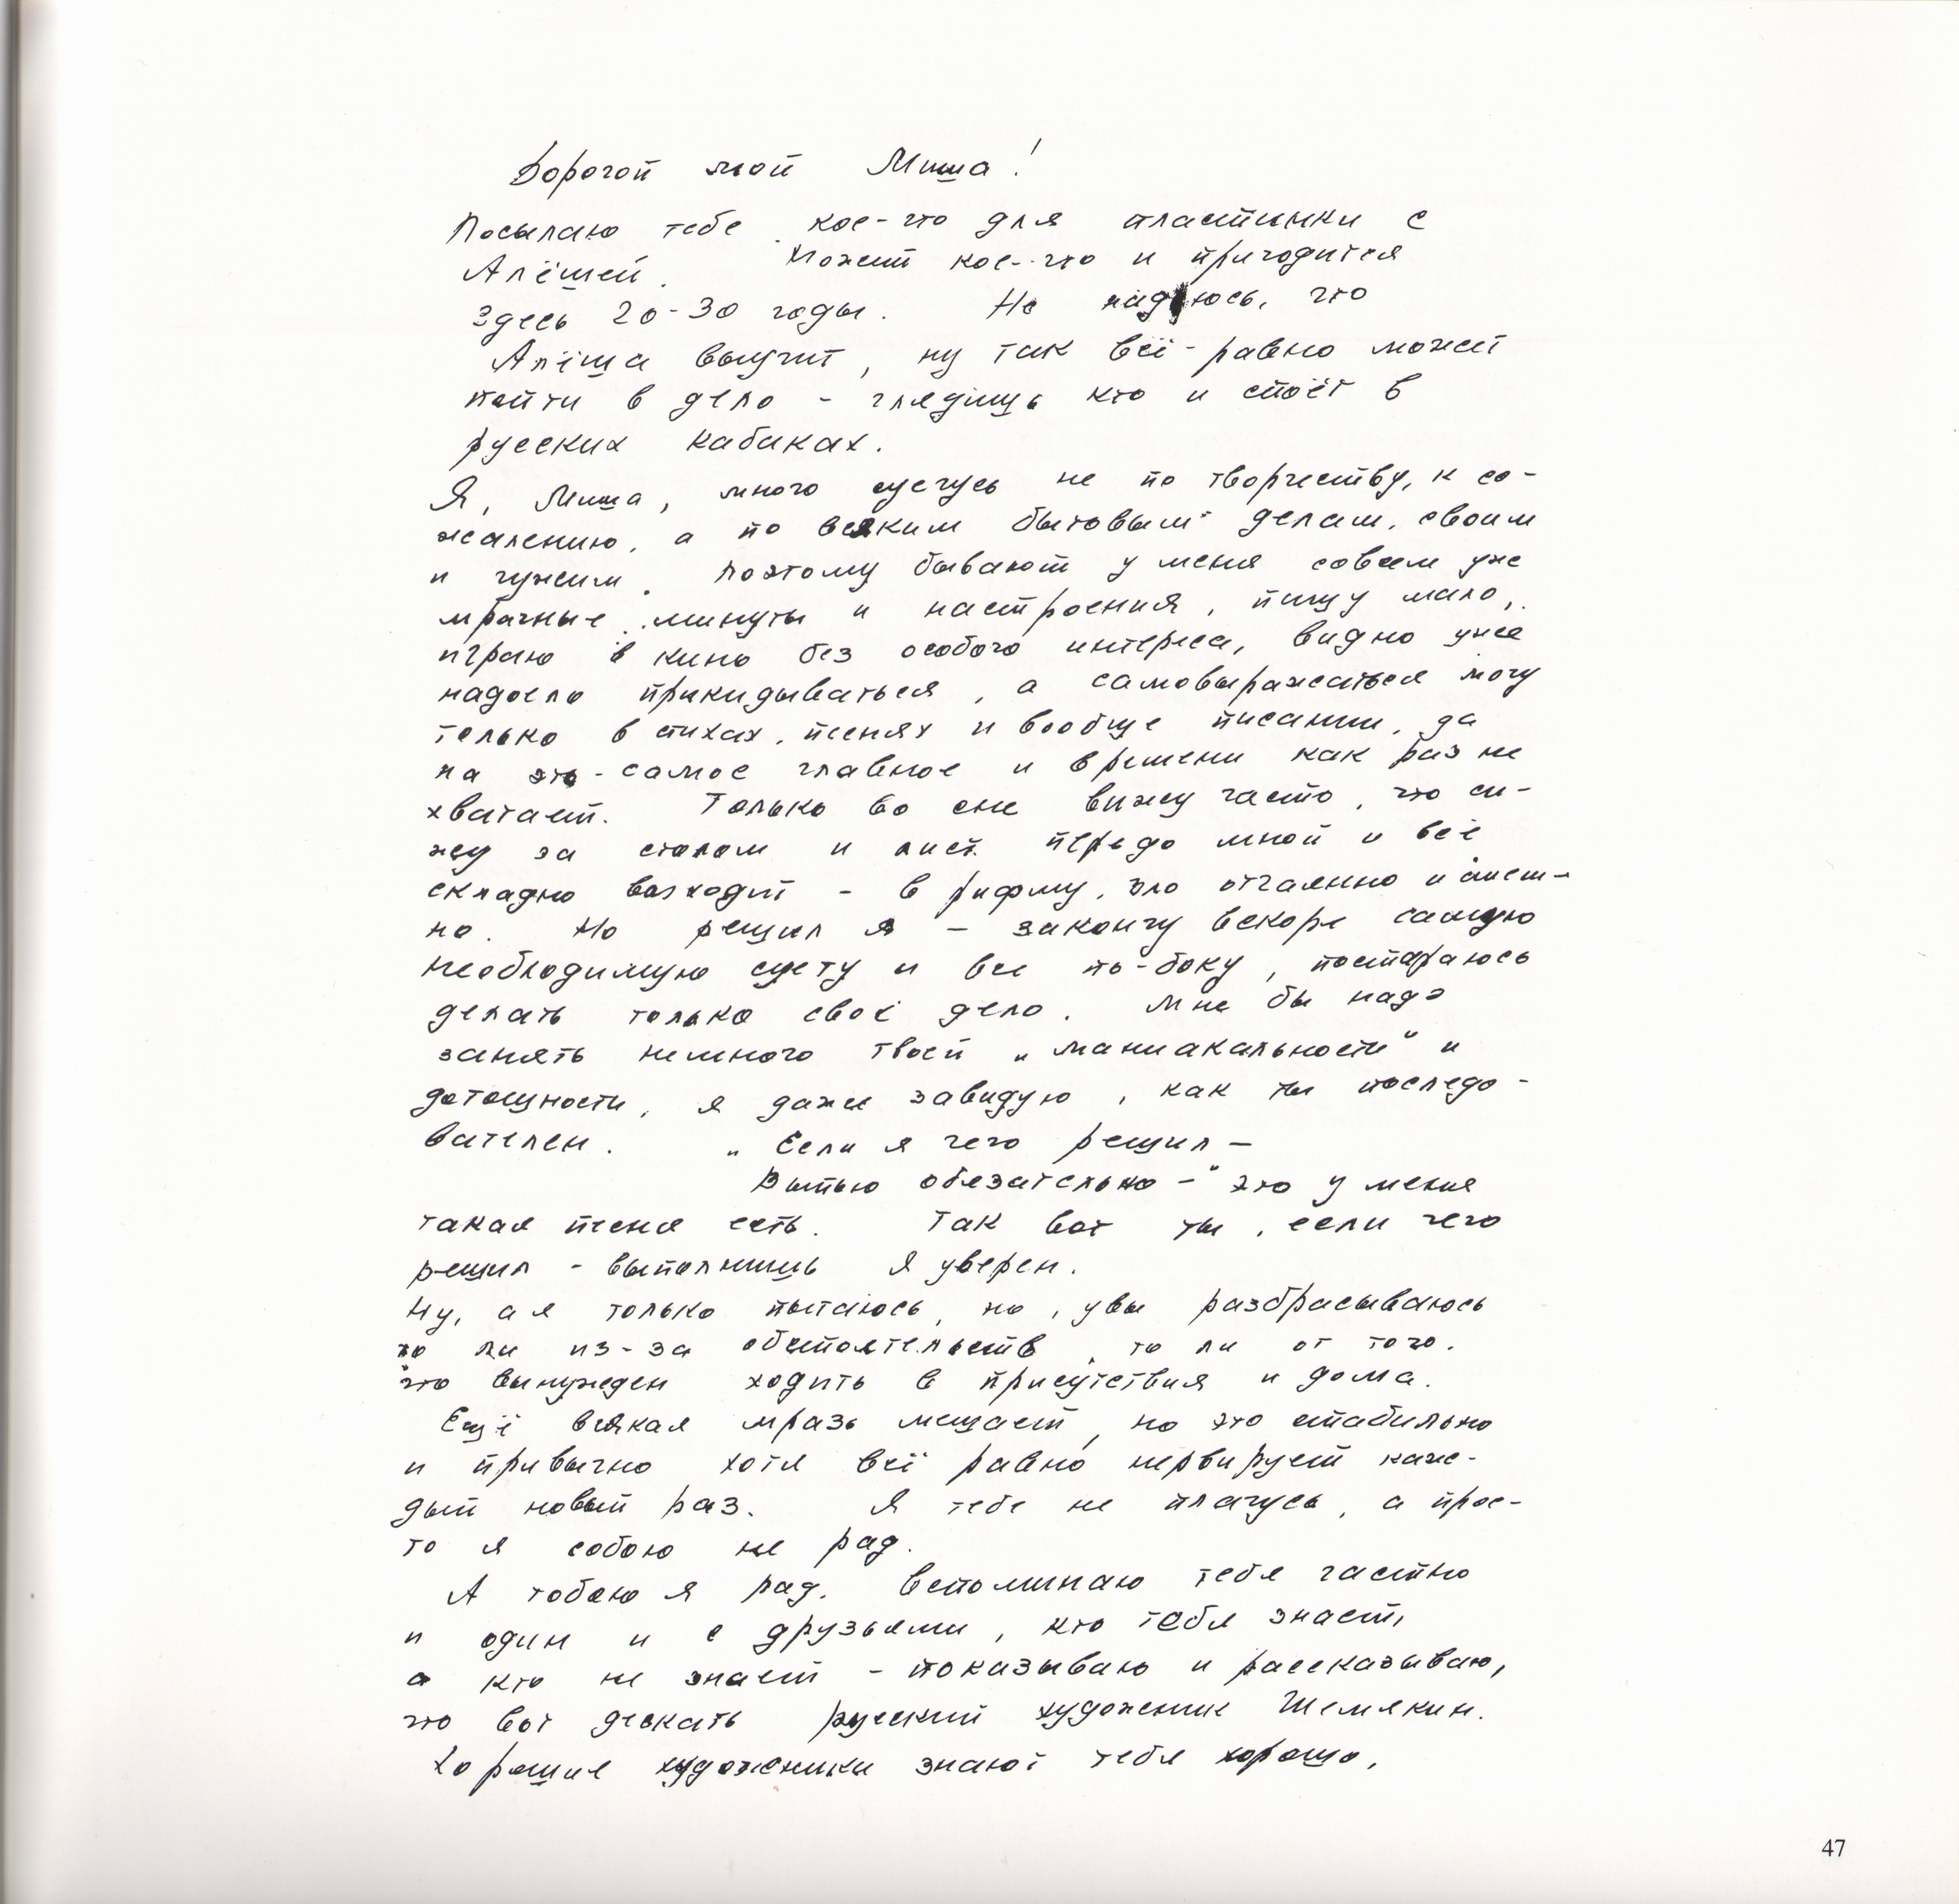 Дорогой мой Миша!
Посылаю тебе кое-что для пластинки с
Алёшей. Может кое-что и пригодится
Здесь 20-30 годы. Не надеюсь, что
Алёша выучит, ну так всё-равно может
пойти в дело - глядишь кто и споёт в
русских кабаках.
Я, Миша, много суечусь не по творчеству, к со-
жалению, а по всяким бытовым делам, своим
и чужим. Поэтому бывают у меня совсем уже
мрачные минуты и настроения, пишу мало,
играю в кино без особого интереса, видно уже
надоело прикидываться, а самовыражаться могу
только в стихах, песнях и вообще писании, да
на это-самое главное и времени как раз не
хватает. Только во сне вижу часто, что си-
жу за столом и лист передо мной и всё
складно выходит - в рифму, зло отчаянно и смеш-
но. Но решил я - закончу вскоре самую
необходимую суету и все по-боку, постараюсь
делать только своё дело. Мне бы надо
занять немного твоей „маниакальности" и
дотошности, я даже завидую, как ты последо-
вателен. „Если я чего решил -
Выпью обязательно -" это у меня
такая песня есть. Так вот ты, если чего
решил - выполнишь я уверен.
Ну, а я только пытаюсь, но, увы разбрасываюсь
то ли из-за обстоятельств, то ли от того,
что вынужден ходить в присутствия и дома.
Ещё всякая мразь мешает, но это стабильно
и привычно хотя всё равно нервирует каж-
дый новый раз. Я тебе не плачусь, а прос-
то я собою не рад.
А тобою я рад. Вспоминаю тебя частно
и один и с друзьями, кто тебя знает,
а кто не знает - показываю и рассказываю,
что вот дескать русский художник Шемякин.
Хорошие художники знают тебя хорошо,
47